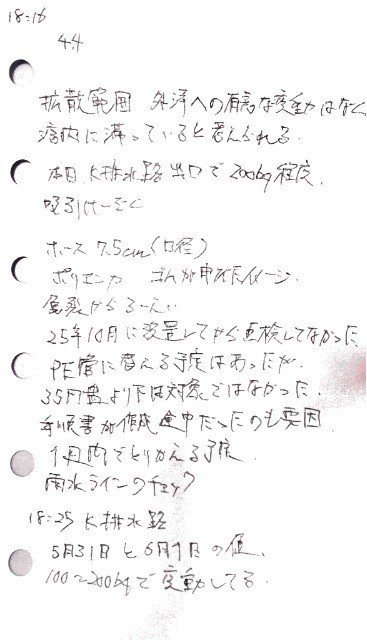 18:16
44
拡散範囲 外洋への有意な変動はなく
湾内に滞っていると考えられる.
本日 K排水路 出口で 200bq程度.
吸引は
ホース 7.5cm(口径)
ゴムが イメージ.
25年10月に設置してから点検してなかった
PE管に替える予定はあったが.
35円盤より下は対象ではなかった.
手順書が作成途中だったのも要因
1月内でとりかえる予定
雨水ラインのチェック
18:25 K排水路
5月31日と6月1日の値.
100~200bqで変動してる.